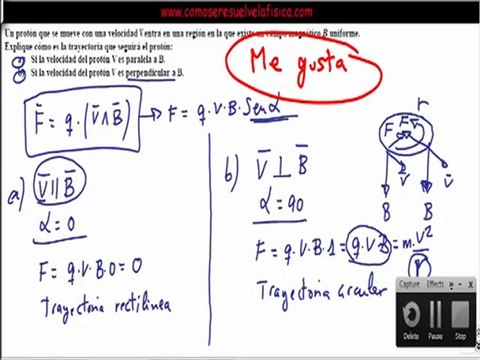 www.comoseresuelvelafisica.com
Un protón que se mueve con una velocidad V entra en una región en la que existe un campo magnético B uniforme.
Explique cómo es la trayectoria que seguirá el protón:
Si la velocidad del protón V es paralela a B.
Si la velocidad del protón V es perpendicular a B.
Me gusta
F̄ = q·(V̄ ∧ B̄) → F = q·V·B·Sen α
a) V̄ ∥ B̄
α = 0
F = q·V·B·0 = 0
Trayectoria rectilinea
b) V̄ ⊥ B̄
α = 90
F = q·V·B·1 = q·V·B = m·V²
r
Trayectoria circular
r
F F
V̄ V̄
B B
Capture Effects
Delete Pause Stop